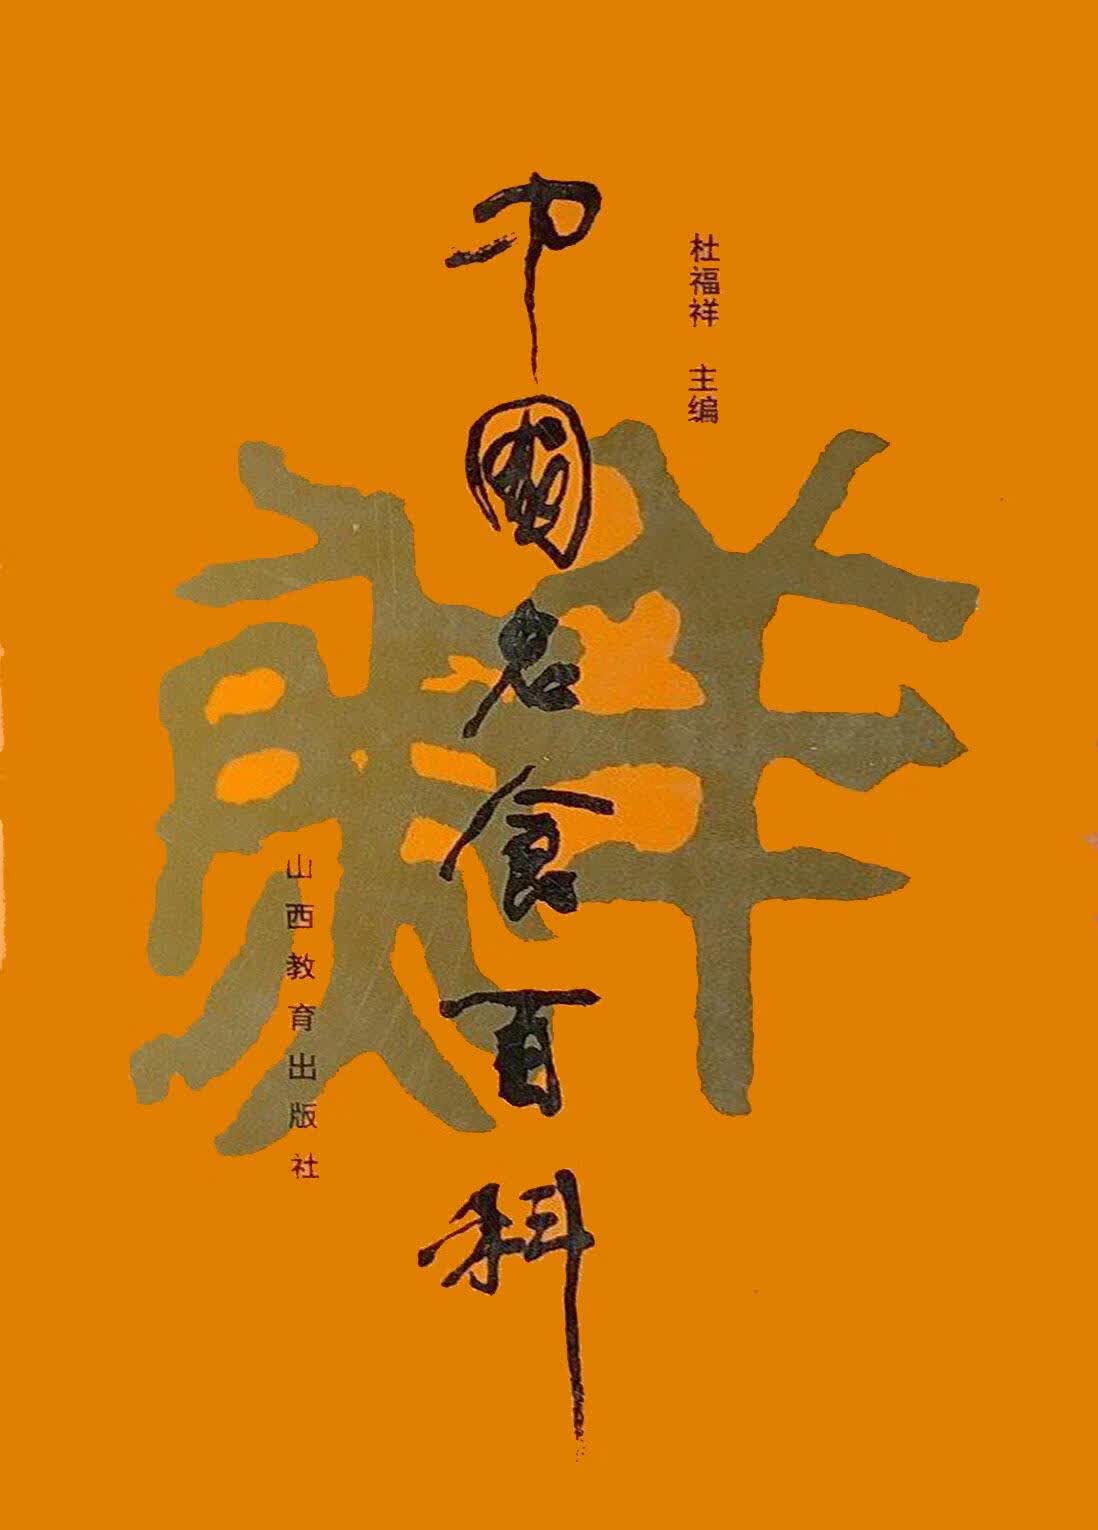 杜福祥 主编
中國名食百科
山西教育出版社
鮮